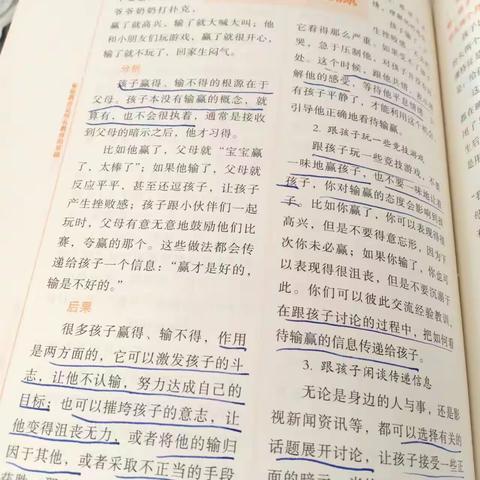 爷爷奶奶打扑克,
赢了就高兴,输了就大喊大叫;他
和小朋友们玩游戏,赢了就很开心,
输了就不玩了,回家生闷气。
分析
孩子赢得、输不得的根源在于
父母。孩子本没有输赢的概念,就
算有,也不会很执着,通常是接收
到父母的暗示之后,他才习得。
比如他赢了,父母就“宝宝赢
了,太棒了”;如果他输了,父母就
反应平平,甚至还逗孩子,让孩子
产生挫败感;孩子跟小伙伴们一起
玩时,父母有意无意地鼓励他们比
赛,夸赢的那个。这些做法都会传
递给孩子一个信息:“赢才是好的,
输是不好的。”
后果
很多孩子赢得、输不得,作用
是两方面的,它可以激发孩子的斗
志,让他不认输,努力达成自己的
目标;也可以摧垮孩子的意志,让
他变得沮丧无力,或者将他的输归
因于其他,或者采取不正当的手段
它看得那么严重,如果
哭,急于压制他,对孩子
处。这个时候,跟他共情,表示
解他的感受,等待他平息情绪
有孩子平静了,才能利用这个机会
引导他正确地看待输赢。
2. 跟孩子玩一些竞技游戏
跟孩子玩一些竞技游戏,不要
一味地赢孩子,也不要一味地让着
孩子,你对输赢的态度会影响到孩
子。比如你赢了,你可以表现得很
高兴,但是不要得意忘形,因为下
次你未必赢;如果你输了,你也可
以表现得很沮丧,但是不要沉溺于
此。你们可以彼此交流经验教训,
在跟孩子讨论的过程中,把如何看
待输赢的信息传递给孩子。
3. 跟孩子闲谈传递信息
无论是身边的人与事,还是影
视新闻资讯等,都可以选择有关的
话题展开讨论,让孩子接受一些正